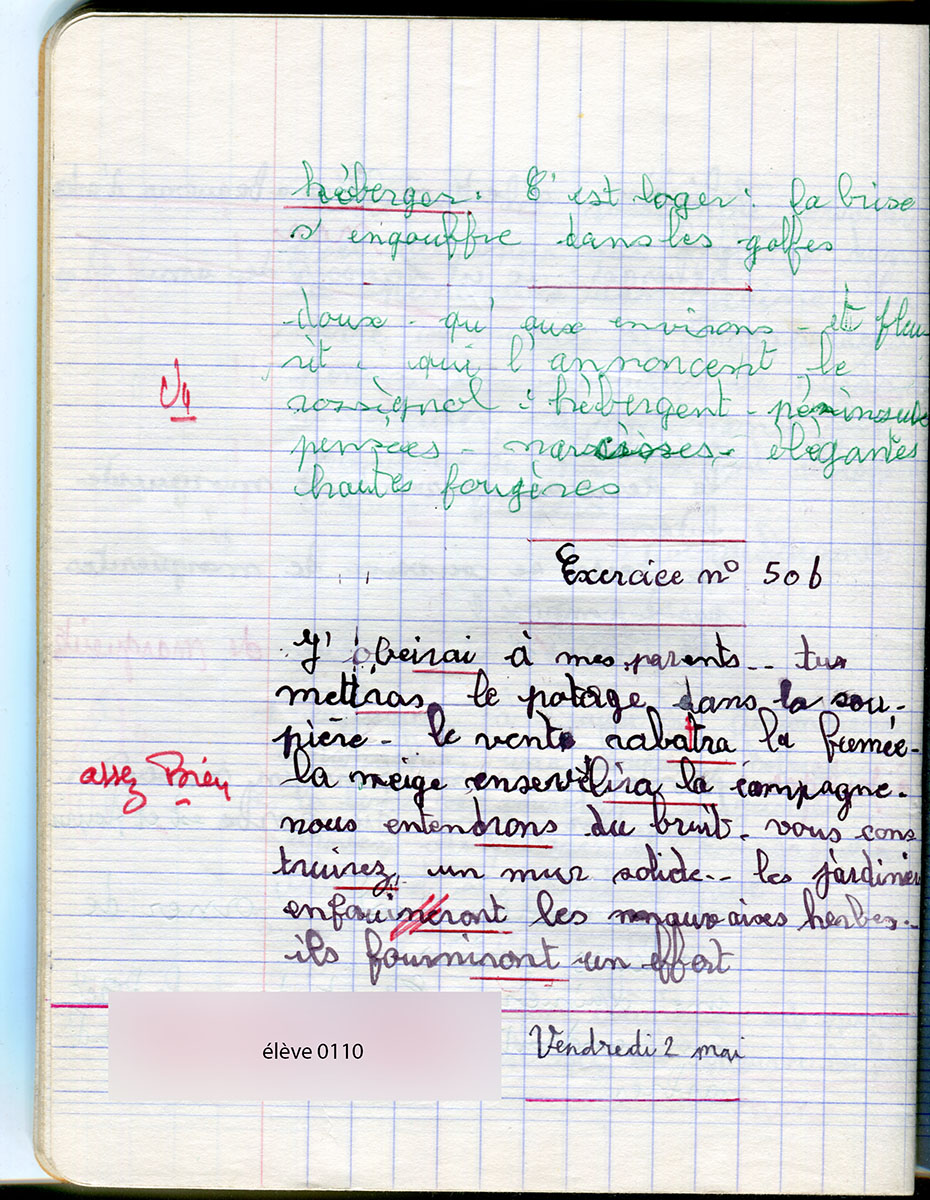 hèberger : C'est loger : la brise
s'engouffre dans les golfes
doux - qu'aux environs - et fleu
rit - qui l'annoncent le
rossignol : hèbergent - péninsule
pensées - narcisses - élègantes
hautes fougères
Exercice n° 506
J'obeirai à mes parents -- tu
mettras le potage dans la sou-
pière - le vent rabattra la fumée -
assez Bien
la neige ensevèlira la campagne.
nous entendrons du bruit - vous cons
truirez un mur solide -- les jardiniers
enfouineront les mauvaises herbes --
ils fourniront un effort
élève 0110
Vendredi 2 mai